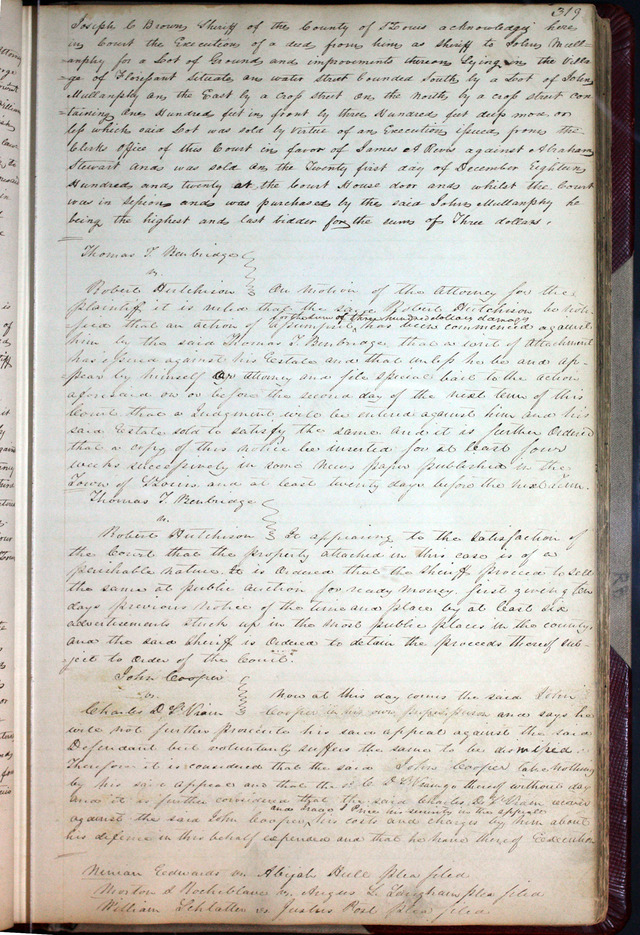 319
Joseph C Brown Sheriff of the County of St Louis acknowledges here
in Court the Execution of a deed from him as sheriff to John Mull-
anphy for a Lot of Ground and improvements thereon Lying in the Villa-
ge of Florisant situate on water street bounded South by a Lot of John
Mullanphy on the East by a cross street on the North by a cross street con-
taining One Hundred feet in front by three Hundred feet deep more or
less which said Lot was sold by Virtue of an Execution issued from the
Clerks office of this Court in favor of James A Reves against Abraham
Stewart and was sold on the Twenty first day of December Eighteen
Hundred and twenty at the Court House door and whilst the Court
was in session and was purchased by the said John Mullanphy he
being the highest and last bidder for the sum of Three dollars.
Thomas T. Benbridge
vs.
Robert Hutchison On motion of the Attorney for the
plaintiff it is ruled that the said Robert Hutchison be noti-
for the sum of three hundred dollars damages
fied that an action of assumpsit has been commenced against
him by the said Thomas T. Benbridge that a writ of Attachment
has issued against his Estate and that unless he be and ap-
pear by himself or attorney and file special bail to the action
aforesaid on or before the second day of the next term of this
Court that a Judgment will be entered against him and his
said Estate sold to satisfy the same and it is further Ordered
that a copy of this notice be inserted for at least four
weeks successively in some News paper published in the
Town of St Louis and at least twenty days before the next term.
Thomas T. Benbridge
vs.
Robert Hutchison It appearing to the satisfaction of
the Court that the property attached in this case is of a
perishable nature. It is Ordered that the sheriff proceed to sell
the same at public auction for ready money. first giving ten
days previous notice of the time and place by at least six
advertisements stuck up in the most public places in the county,
and the said Sheriff is Ordered to detain the proceeds thereof sub-
ject to Order of the Court.
John Cooper
vs.
Charles D. St Vrain Now at this day comes the said John
Cooper in his own proper person and says he
will not further prosecute his said appeal against the said
Defendant but voluntarily suffers the same to be dismissed
Therefore it is considered that the said John Cooper take nothing
by his said appeal and that the sd C. D. St Vrain go thereof without day
and it is further considered that the said Charles D. St Vrain recover
and his security in the appeal
against the said John Cooper his costs and charges by him about
his defence in this behalf expended and that he have thereof Execution
Ninian Eedwards vs Abijah Hull plea filed
Morton & Rocheblave vs Angus L. Langham plea filed
William Schlatter vs Justus Post plea filed